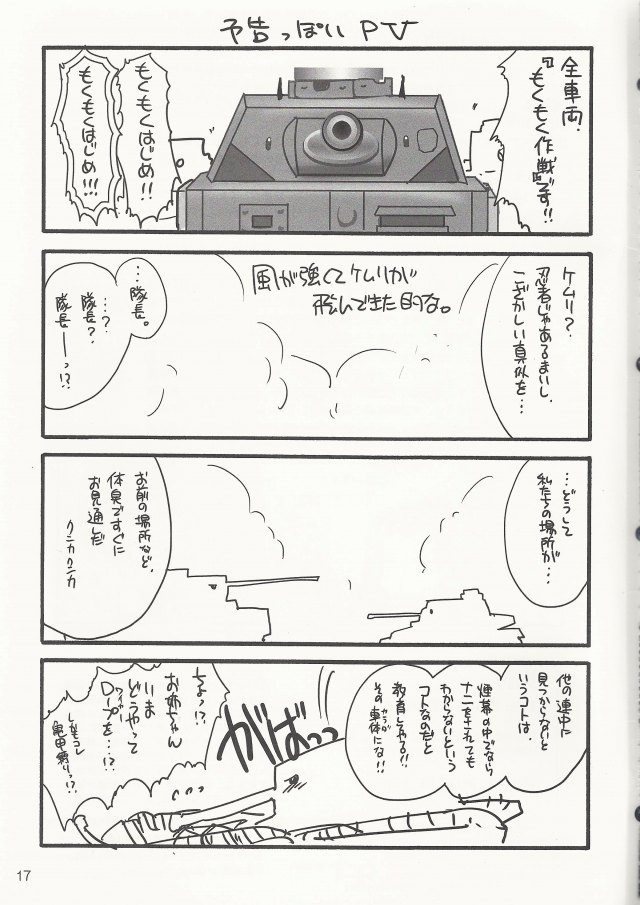 予告っぽいPV
全車両、
『もくもく作戦』です!!
もくもくはじめ!!
もくもくはじめ!!!
ケムリ?
忍者じゃあるまいし、
こざかしい真似を…
風が強くてケムリが
飛んできた的な。
…隊長。
…?
隊長?
隊長ーーっ!?
…どうして
私たちの場所が…
お前の場所など、
体臭ですぐに
お見通しだ
クンカクンカ
他の連中に
見つからないと
いうコトは、
煙幕の中でなら
ナニをされても
わからないという
コトなのだと
教育してやる!!
その車体にな!!
カラダ
がばっっ
ちょっ!?
お姉ちゃん
いま
どうやって
ロープを…!?
ワイヤー
しかもコレ
亀甲縛りっ!?
17